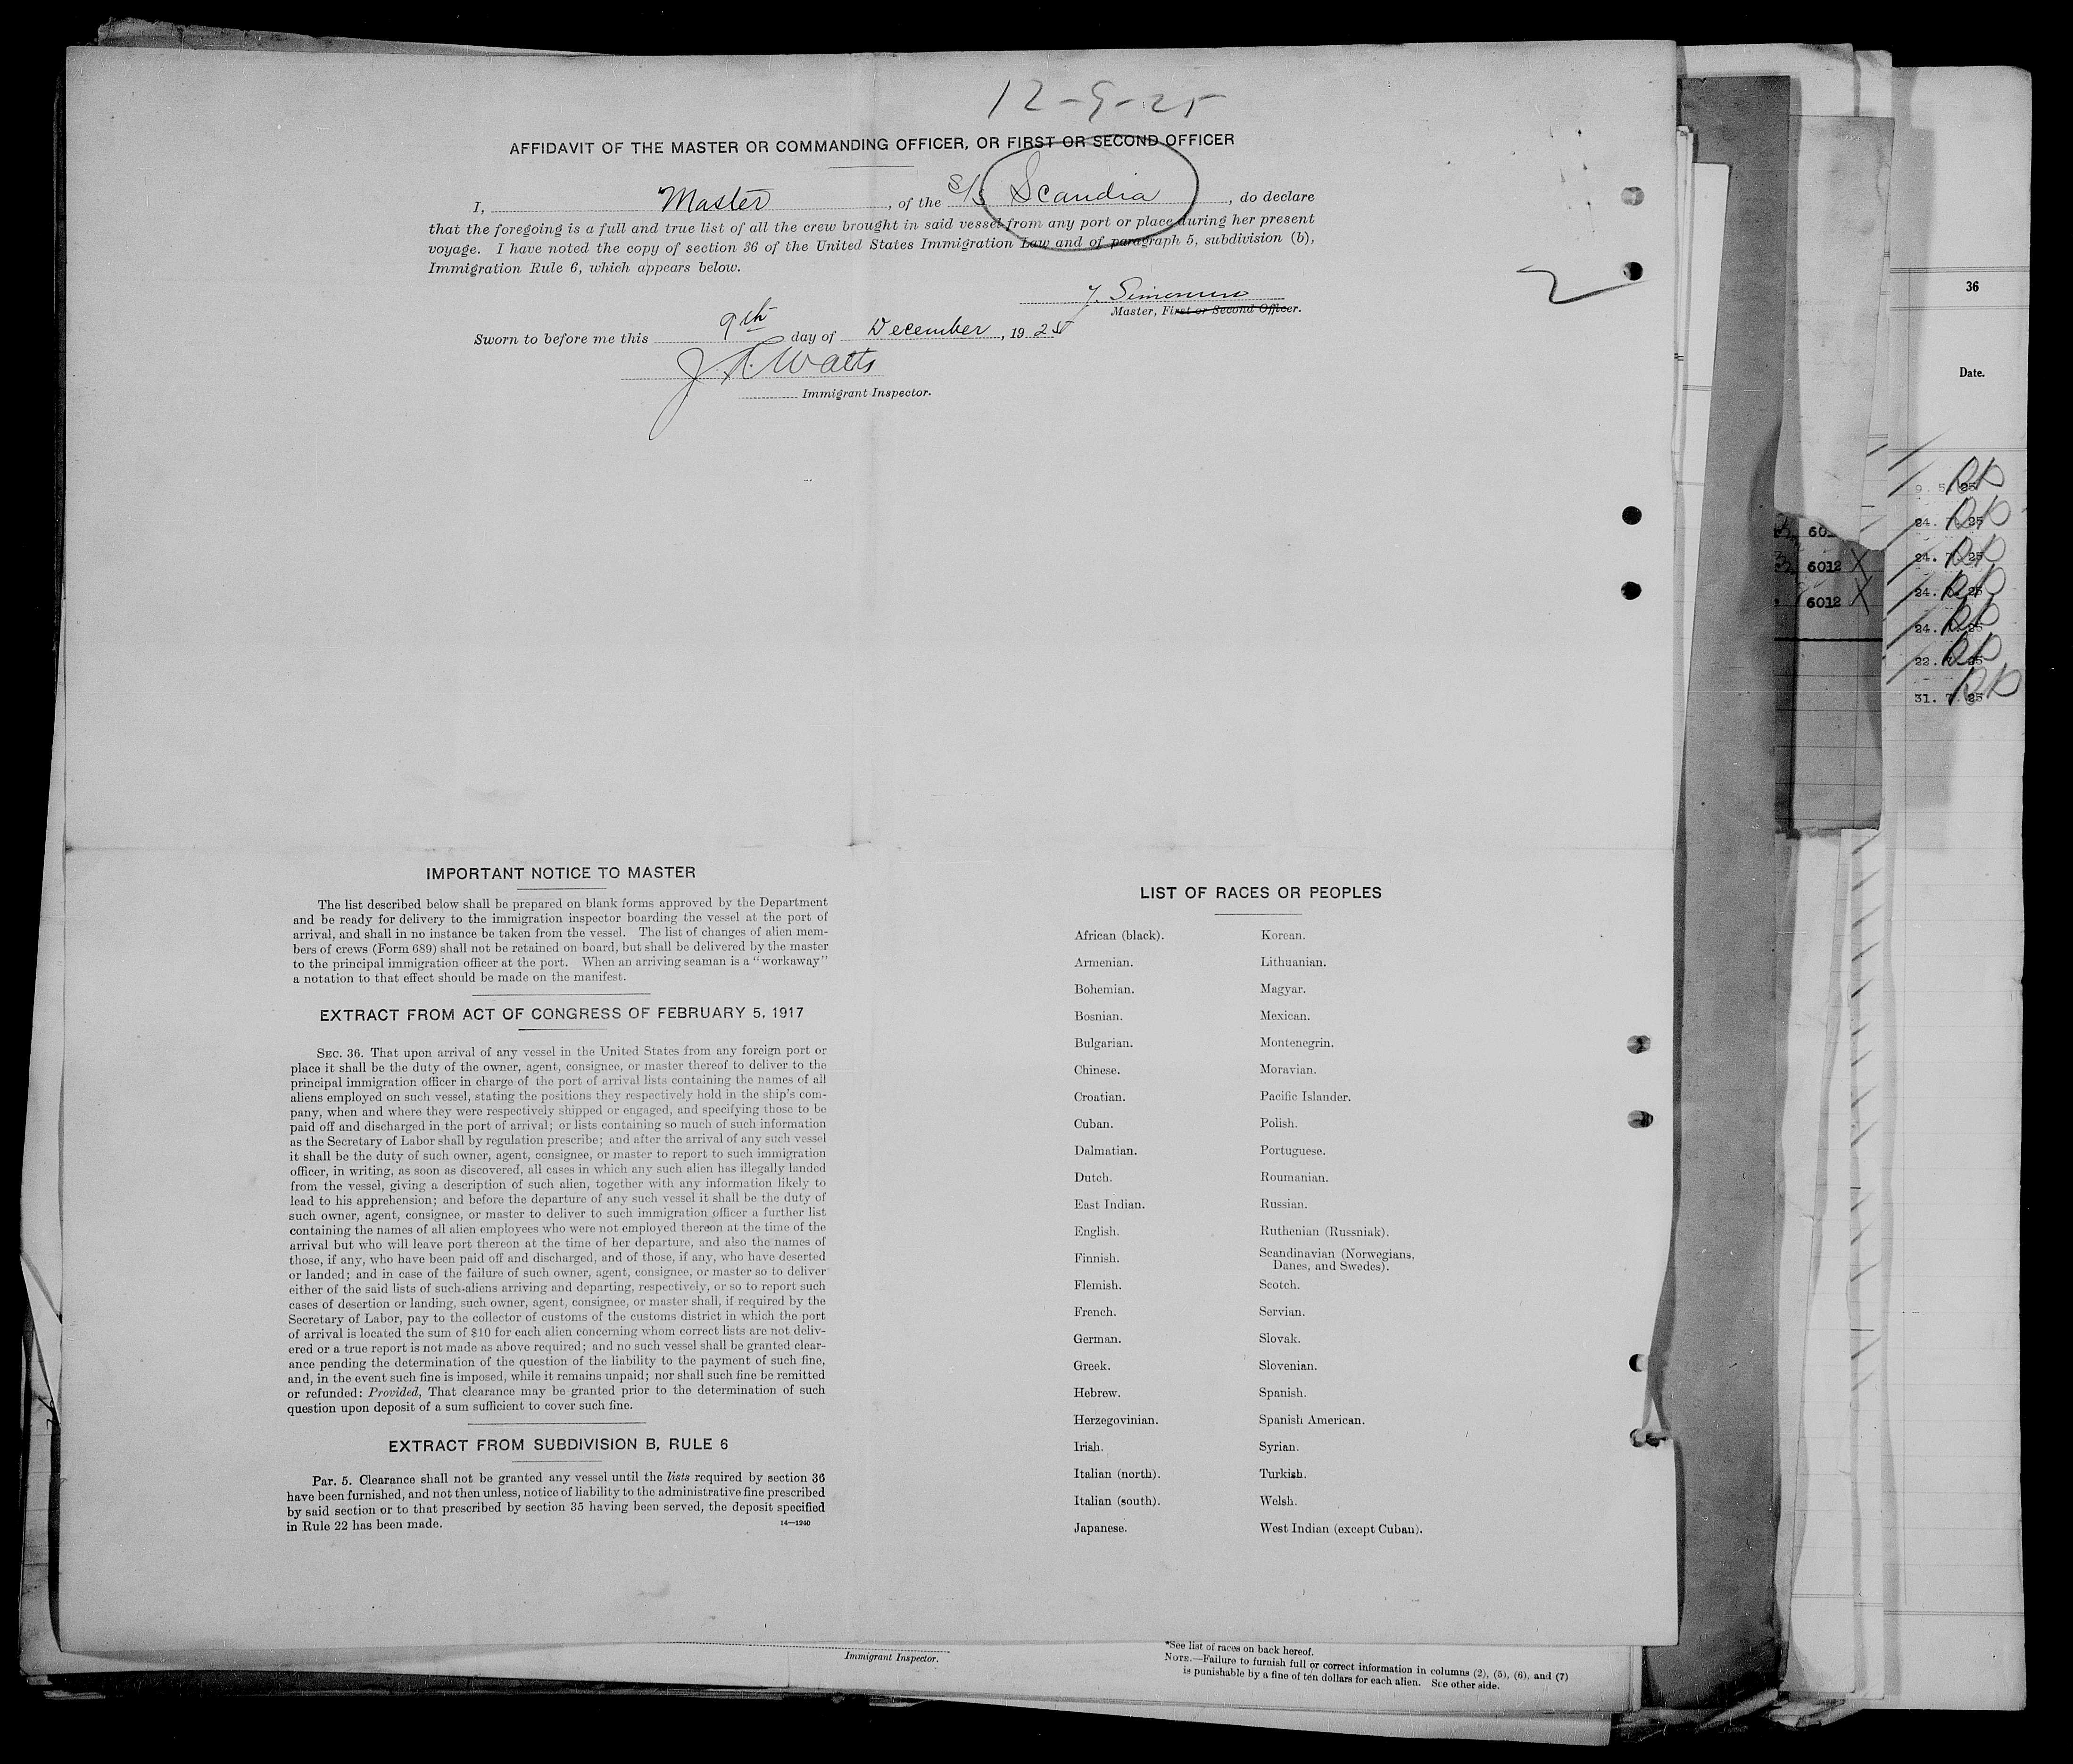 12-9-25
AFFIDAVIT OF THE MASTER OR COMMANDING OFFICER, OR FIRST OR SECOND OFFICER
I, Master, of the S/S Scandia, do declare
that the foregoing is a full and true list of all the crew brought in said vessel from any port or place during her present
voyage. I have noted the copy of section 36 of the United States Immigration Law and of paragraph 5, subdivision (b),
Immigration Rule 6, which appears below.
Master, First or Second Officer.
Sworn to before me this 9th day of December, 1925
Watts
Immigrant Inspector.
IMPORTANT NOTICE TO MASTER
The list described below shall be prepared on blank forms approved by the Department
and be ready for delivery to the immigration inspector boarding the vessel at the port of
arrival, and shall in no instance be taken from the vessel. The list of changes of alien mem-
bers of crews (Form 689) shall not be retained on board, but shall be delivered by the master
to the principal immigration officer at the port. When an arriving seaman is a "workaway"
a notation to that effect should be made on the manifest.
EXTRACT FROM ACT OF CONGRESS OF FEBRUARY 5, 1917
SEC. 36. That upon arrival of any vessel in the United States from any foreign port or
place it shall be the duty of the owner, agent, consignee, or master thereof to deliver to the
principal immigration officer in charge of the port of arrival lists containing the names of all
aliens employed on such vessel, stating the positions they respectively hold in the ship's com-
pany, when and where they were respectively shipped or engaged, and specifying those to be
paid off and discharged in the port of arrival; or lists containing so much of such information
as the Secretary of Labor shall by regulation prescribe; and after the arrival of any such vessel
it shall be the duty of such owner, agent, consignee, or master to report to such immigration
officer, in writing, as soon as discovered, all cases in which any such alien has illegally landed
from the vessel, giving a description of such alien, together with any information likely to
lead to his apprehension; and before the departure of any such vessel it shall be the duty of
such owner, agent, consignee, or master to deliver to such immigration officer a further list
containing the names of all alien employees who were not employed thereon at the time of the
arrival but who will leave port thereon at the time of her departure, and also the names of
those, if any, who have been paid off and discharged, and of those, if any, who have deserted
or landed; and in case of the failure of such owner, agent, consignee, or master so to deliver
either of the said lists of such aliens arriving and departing, respectively, or so to report such
cases of desertion or landing, such owner, agent, consignee, or master shall, if required by the
Secretary of Labor, pay to the collector of customs of the customs district in which the port
of arrival is located the sum of $10 for each alien concerning whom correct lists are not deliv-
ered or a true report is not made as above required; and no such vessel shall be granted clear-
ance pending the determination of the question of the liability to the payment of such fine,
and, in the event such fine is imposed, while it remains unpaid; nor shall such fine be remitted
or refunded: Provided, That clearance may be granted prior to the determination of such
question upon deposit of a sum sufficient to cover such fine.
EXTRACT FROM SUBDIVISION B, RULE 6
Par. 5. Clearance shall not be granted any vessel until the lists required by section 36
have been furnished, and not then unless, notice of liability to the administrative fine prescribed
by said section or to that prescribed by section 35 having been served, the deposit specified
in Rule 22 has been made.
14—1240
LIST OF RACES OR PEOPLES
African (black). Korean.
Armenian. Lithuanian.
Bohemian. Magyar.
Bosnian. Mexican.
Bulgarian. Montenegrin.
Chinese. Moravian.
Croatian. Pacific Islander.
Cuban. Polish.
Dalmatian. Portuguese.
Dutch. Roumanian.
East Indian. Russian.
English. Ruthenian (Russniak).
Finnish. Scandinavian (Norwegians,
Danes, and Swedes).
Flemish. Scotch.
French. Servian.
German. Slovak.
Greek. Slovenian.
Hebrew. Spanish.
Herzegovinian. Spanish American.
Irish. Syrian.
Italian (north). Turkish.
Italian (south). Welsh.
Japanese. West Indian (except Cuban).
Immigrant Inspector.
*See list of races on back hereof.
NOTE.—Failure to furnish full or correct information in columns (2), (5), (6), and (7)
is punishable by a fine of ten dollars for each alien. See other side.
36
Date.
6012 X
6012 X
24. 7. 25
24. 7. 25
31. 7. 25